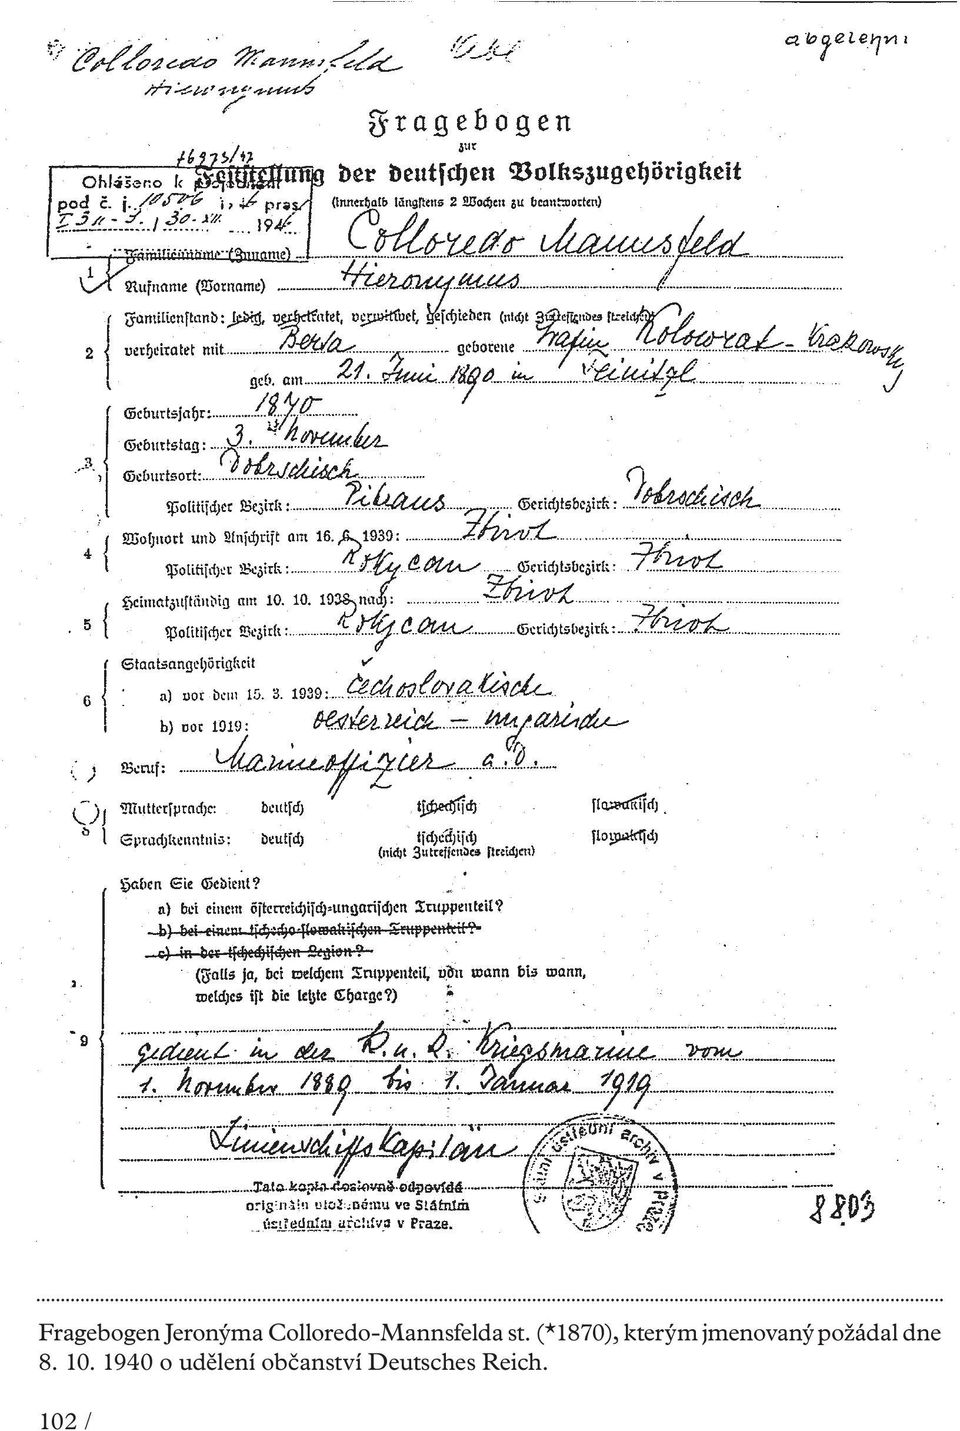 Colloredo Mannsfeld
Hieronymus
abgelehnt
Fragebogen
zur
76975/42
Feststellung der deutschen Volkszugehörigkeit
Ohlášeno k
pod č. j. 10506 pras.
(Innerhalb längstens 2 Wochen zu beantworten)
30. XII. 194
Familienname (Zuname) Colloredo Mannsfeld
1 Rufname (Vorname) Hieronymus
Familienstand: ledig, verheiratet, verwitwet, geschieden (nicht Zutreffendes streichen)
2 verheiratet mit Berta geborene Gräfin Kolowrat-Krakowsky
geb. am 21. Juni 1890 in Teinitzl
Geburtsjahr: 1870
Geburtstag: 3. November
3 Geburtsort: Dobrschisch
Politischer Bezirk: Pibrans Gerichtsbezirk: Dobrschisch
4 Wohnort und Anschrift am 16. 6. 1939: Zbirot
Politischer Bezirk: Rokycan Gerichtsbezirk: Zbirot
Heimatzuständig am 10. 10. 1938 nach: Zbirot
5 Politischer Bezirk: Rokycan Gerichtsbezirk: Zbirot
Staatsangehörigkeit
6 a) vor dem 15. 3. 1939: čechoslovakische
b) vor 1919: oesterreich – ungarische
Beruf: Marineoffizier a.D.
Muttersprache: deutsch tschechisch slowakisch
Sprachkenntnis: deutsch tschechisch slowakisch
(nicht Zutreffendes streichen)
Haben Sie Gedient?
a) bei einem österreichisch-ungarischen Truppenteil?
b) bei einem tschecho-slowakischen Truppenteil?
c) in der tschechischen Legion?
(Falls ja, bei welchem Truppenteil, von wann bis wann,
welches ist die letzte Charge?)
9
gedient in der K. u. K. Kriegsmarine vom
1. November 1889 bis 1. Januar 1919
Linienschiffskapitän
Státní ústřední archiv v Praze
Tato kopie doslovně odpovídá
originálu uloženému ve Státním
ústředním archivu v Praze.
8803
Fragebogen Jeronýma Colloredo-Mannsfelda st. (*1870), kterým jmenovaný požádal dne
8. 10. 1940 o udělení občanství Deutsches Reich.
102 /